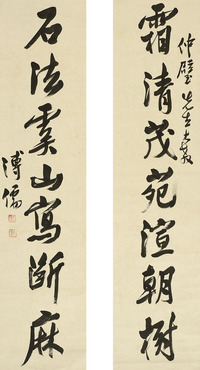 仲璧先生大教
霜清茂苑渲朝樹
石法虞山寫斷麻
溥儒